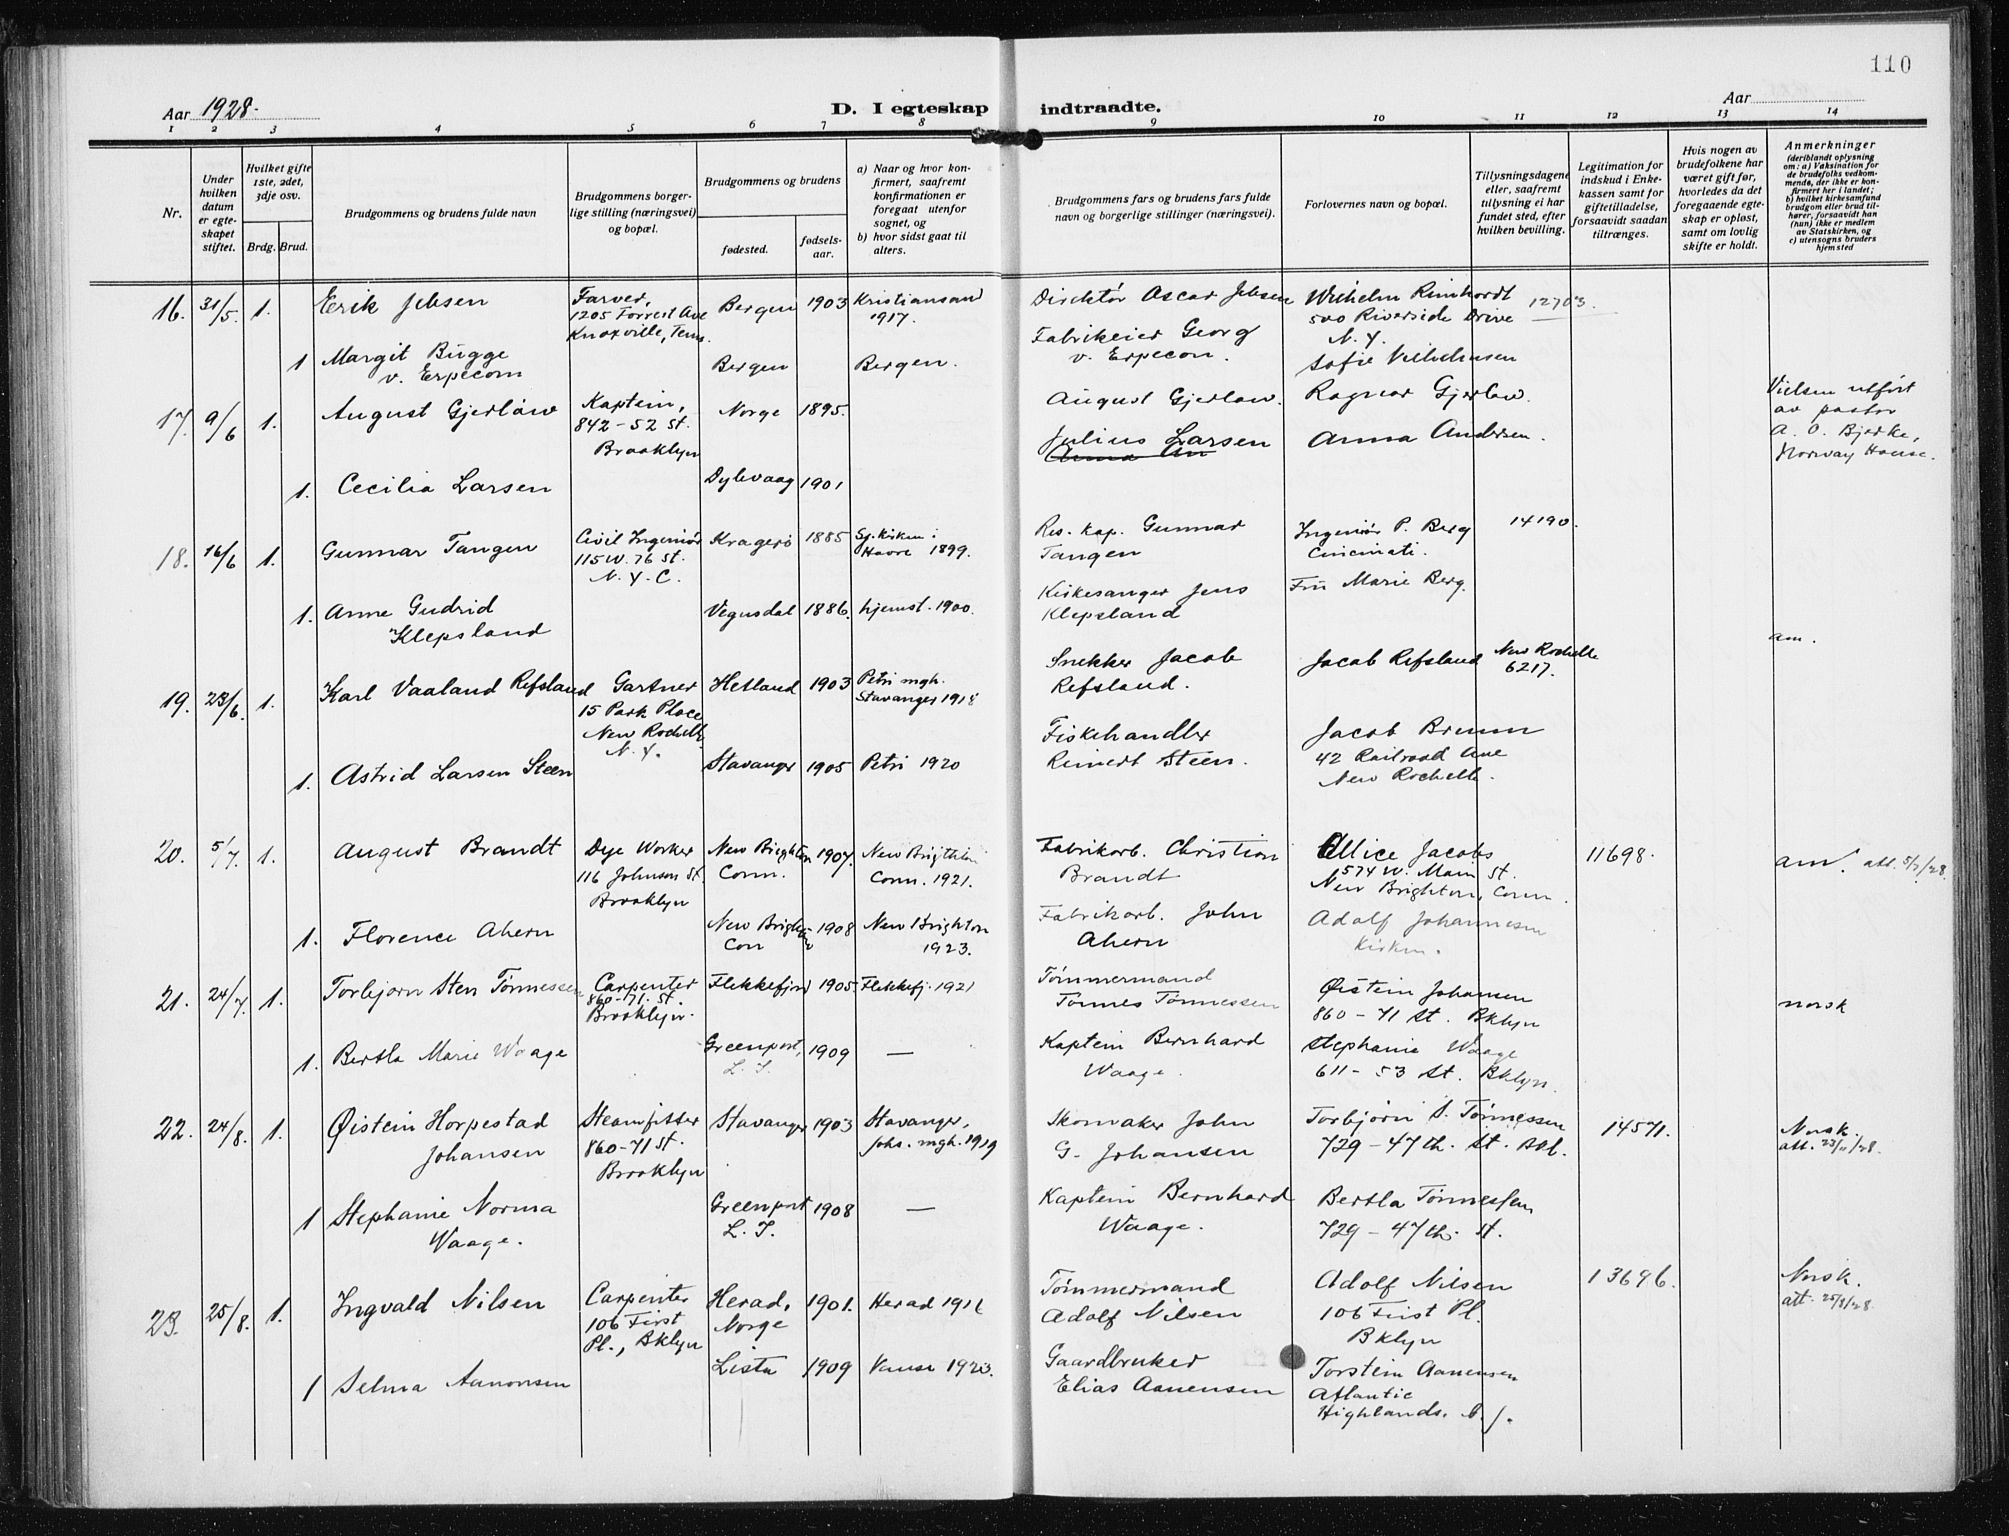 110
Aar 1928.
D. I egteskap indtraadte.
Aar
1 2 3 4 5 6 7 8 9 10 11 12 13 14
Nr.
Under hvilken datum er egteskapet stiftet.
Hvilket gifte 1ste, 2det, 3dje osv.
Brdg. Brud.
Brudgommens og brudens fulde navn
Brudgommens borgerlige stilling (næringsvei) og bopæl.
Brudgommens og brudens
fødested.
fødselsaar.
a) Naar og hvor konfirmert, saafremt konfirmationen er foregaat utenfor sognet, og
b) hvor sidst gaat til alters.
Brudgommens fars og brudens fars fulde navn og borgerlige stillinger (næringsvei).
Forlovernes navn og bopæl.
Tillysningsdagene eller, saafremt tillysning ei har fundet sted, efter hvilken bevilling.
Legitimation for indskud i Enkekassen samt for giftetilladelse, forsaavidt saadan tiltrænges.
Hvis nogen av brudefolkene har været gift før, hvorledes da det foregaaende egteskap er opløst, samt om lovlig skifte er holdt.
Anmerkninger
(deriblandt oplysning om: a) Vaksination for de brudefolks vedkommende, der ikke er konfirmert her i landet; b) hvilket kirkesamfund brudgom eller brud tilhører, forsaavidt han (hun) ikke er medlem av Statskirken, og c) utensogns bruders hjemsted
16. 31/5. 1. Erik Jebsen
Farver,
1205 Forrest Ave
Knoxville, Tenn.
Bergen 1903 Kristiansand
1917.
Direktør Oscar Jebsen
Wilhelm Reinhardt
500 Riverside Drive
N. Y.
12703.
1 Margit Bugge
v. Erpecom
Bergen
Bergen.
Fabrikeier Georg
v. Erpecom.
Sofie
17. 9/6 1. August Gjerløw
Kaptein,
842-52 St.
Brooklyn
Norge 1895.
August Gjerløw.
Ragnar Gjerløw.
Vielsen utført
av pastor
A. O. Bjerke,
Norway House.
1. Cecilia Larsen
Dybvaag 1901
Julius Larsen
Anna Andersen.
18. 16/6 1. Gunnar Tangen
Civil Ingeniør
115 W. 76 St.
N. Y. C.
Kragerø 1885 Sj.kirken i
Havre 1899.
Res. kap. Gunnar
Tangen
Ingeniør P. Berg
Cincinati.
14190.
1. Anne Gudrid
Klepsland
Vegusdal 1886. hjemst. 1900.
Kirkesanger Jens
Klepsland
Fru Marie Berg.
19. 23/6. 1. Karl Vaaland Refsland
Gartner
15 Park Place
New Rochelle
N. Y.
Hetland 1903 Petri mgh.
Stavanger 1918
Snekker Jacob
Refsland.
Jacob Refsland
New Rochelle
6217.
am.
1. Astrid Larsen Steen
Stavanger 1905 Petri 1920
Fiskehandler
Reinert Steen.
Jacob Bruun
42 Railroad Ave
New Rochelle.
20. 5/7. 1. August Brandt
Dye Worker
116 Johnson St.
Brooklyn
New Brighton
Conn.
1907. New Brigthton
Conn. 1921.
Fabrikarb. Christian
Brandt
Allice Jacobs
574 W. Main St.
New Brighton, Conn.
11698.
am. att. 5/7/28.
1. Florence Ahern
New Brighton
Con
1908 New Brighton
1923.
Fabrikarb. John
Ahern
Adolf Johannesen
Kirken.
21. 24/7. 1. Torbjørn Sten Tønnessen
Carpenter
860-71. St.
Brooklyn.
Flekkefjord 1905 Flekkefj. 1921
Tømmermand
Tønnes Tønnessen
Øistein Johansen
860-71 St. Bklyn
norsk
1. Bertla Marie Waage
Greenport,
L. I.
1909 —
Kaptein Bernhard
Waage.
Stephanie Waage
611-53 St. Bklyn.
22. 24/8. 1. Øistein Horpestad
Johansen
Steamfitter
860-71 St.
Brooklyn
Stavanger 1903 Stavanger,
Johs. mgh. 1919
Skomaker John
G. Johansen
Torbjørn S. Tønnessen
729-47th. St. Bkl.
14571.
Norsk.
att. 23/11/28.
1 Stephanie Norma
Waage.
Greenport
L. I.
1908 —
Kaptein Bernhard
Waage.
Bertla Tønnessen
729-47th. St.
23. 25/8. 1. Ingvald Nilsen
Carpenter
106 First
Pl., Bklyn
Herad,
Norge
1901. Herad 1916
Tømmermand
Adolf Nilsen
Adolf Nilsen
106 First Pl.
Bklyn
13696.
Norsk.
att. 25/8/28.
1 Selma Aanonsen
Lista 1909 Vanse 1923.
Gaardbruker
Elias Aanensen
Torstein Aanensen
Atlantic
Highlands. N. J.